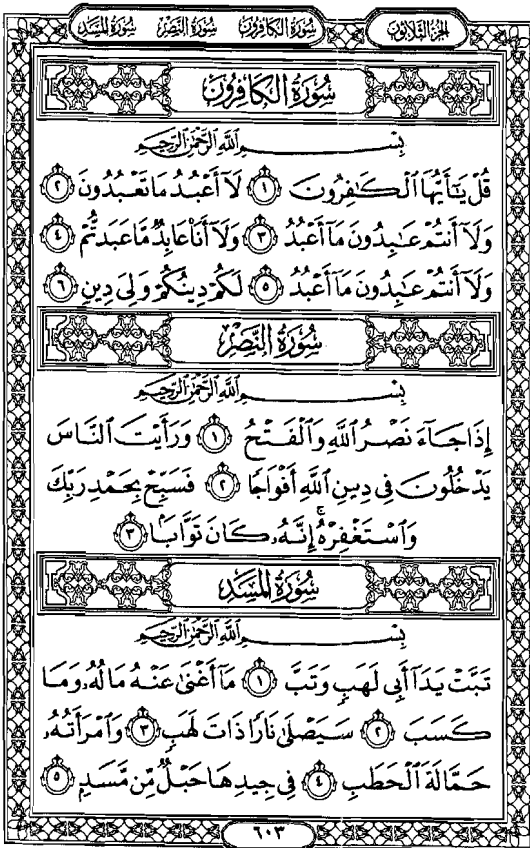 الجزء الثلاثون سورة الكافرون سورة النصر سورة المسد
سُورَةُ الكَافِرُونَ
بِسْمِ اللَّهِ الرَّحْمَٰنِ الرَّحِيمِ
قُلْ يَـٰٓأَيُّهَا ٱلْكَـٰفِرُونَ ١ لَآ أَعْبُدُ مَا تَعْبُدُونَ ٢
وَلَآ أَنتُمْ عَـٰبِدُونَ مَآ أَعْبُدُ ٣ وَلَآ أَنَا۠ عَابِدٌ مَّا عَبَدتُّمْ ٤
وَلَآ أَنتُمْ عَـٰبِدُونَ مَآ أَعْبُدُ ٥ لَكُمْ دِينُكُمْ وَلِىَ دِينِ ٦
سُورَةُ النَّصْرِ
بِسْمِ اللَّهِ الرَّحْمَٰنِ الرَّحِيمِ
إِذَا جَآءَ نَصْرُ ٱللَّهِ وَٱلْفَتْحُ ١ وَرَأَيْتَ ٱلنَّاسَ
يَدْخُلُونَ فِى دِينِ ٱللَّهِ أَفْوَاجًا ٢ فَسَبِّحْ بِحَمْدِ رَبِّكَ
وَٱسْتَغْفِرْهُ ۚ إِنَّهُۥ كَانَ تَوَّابًۢا ٣
سُورَةُ المَسَدِ
بِسْمِ اللَّهِ الرَّحْمَٰنِ الرَّحِيمِ
تَبَّتْ يَدَآ أَبِى لَهَبٍ وَتَبَّ ١ مَآ أَغْنَىٰ عَنْهُ مَالُهُۥ وَمَا
كَسَبَ ٢ سَيَصْلَىٰ نَارًا ذَاتَ لَهَبٍ ٣ وَٱمْرَأَتُهُۥ
حَمَّالَةَ ٱلْحَطَبِ ٤ فِى جِيدِهَا حَبْلٌ مِّن مَّسَدٍۭ ٥
٦٠٣